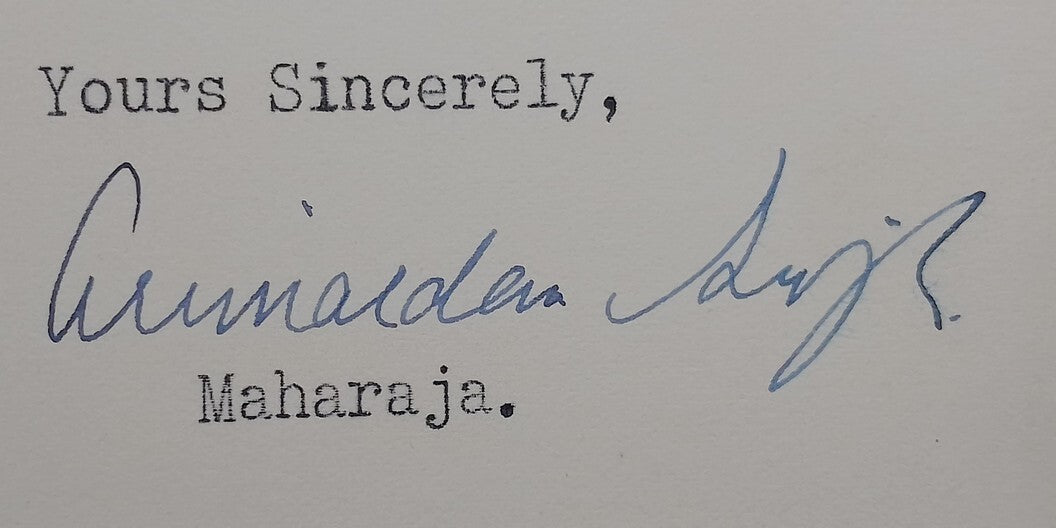 Yours Sincerely,
Arimardan Singh
Maharaja.